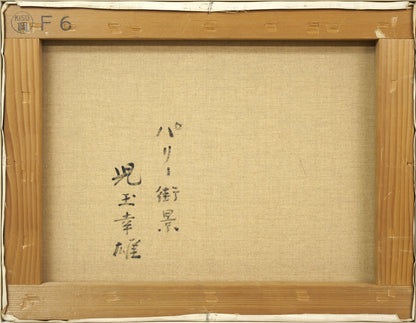 KISO
F6
パリー街景
児玉幸雄